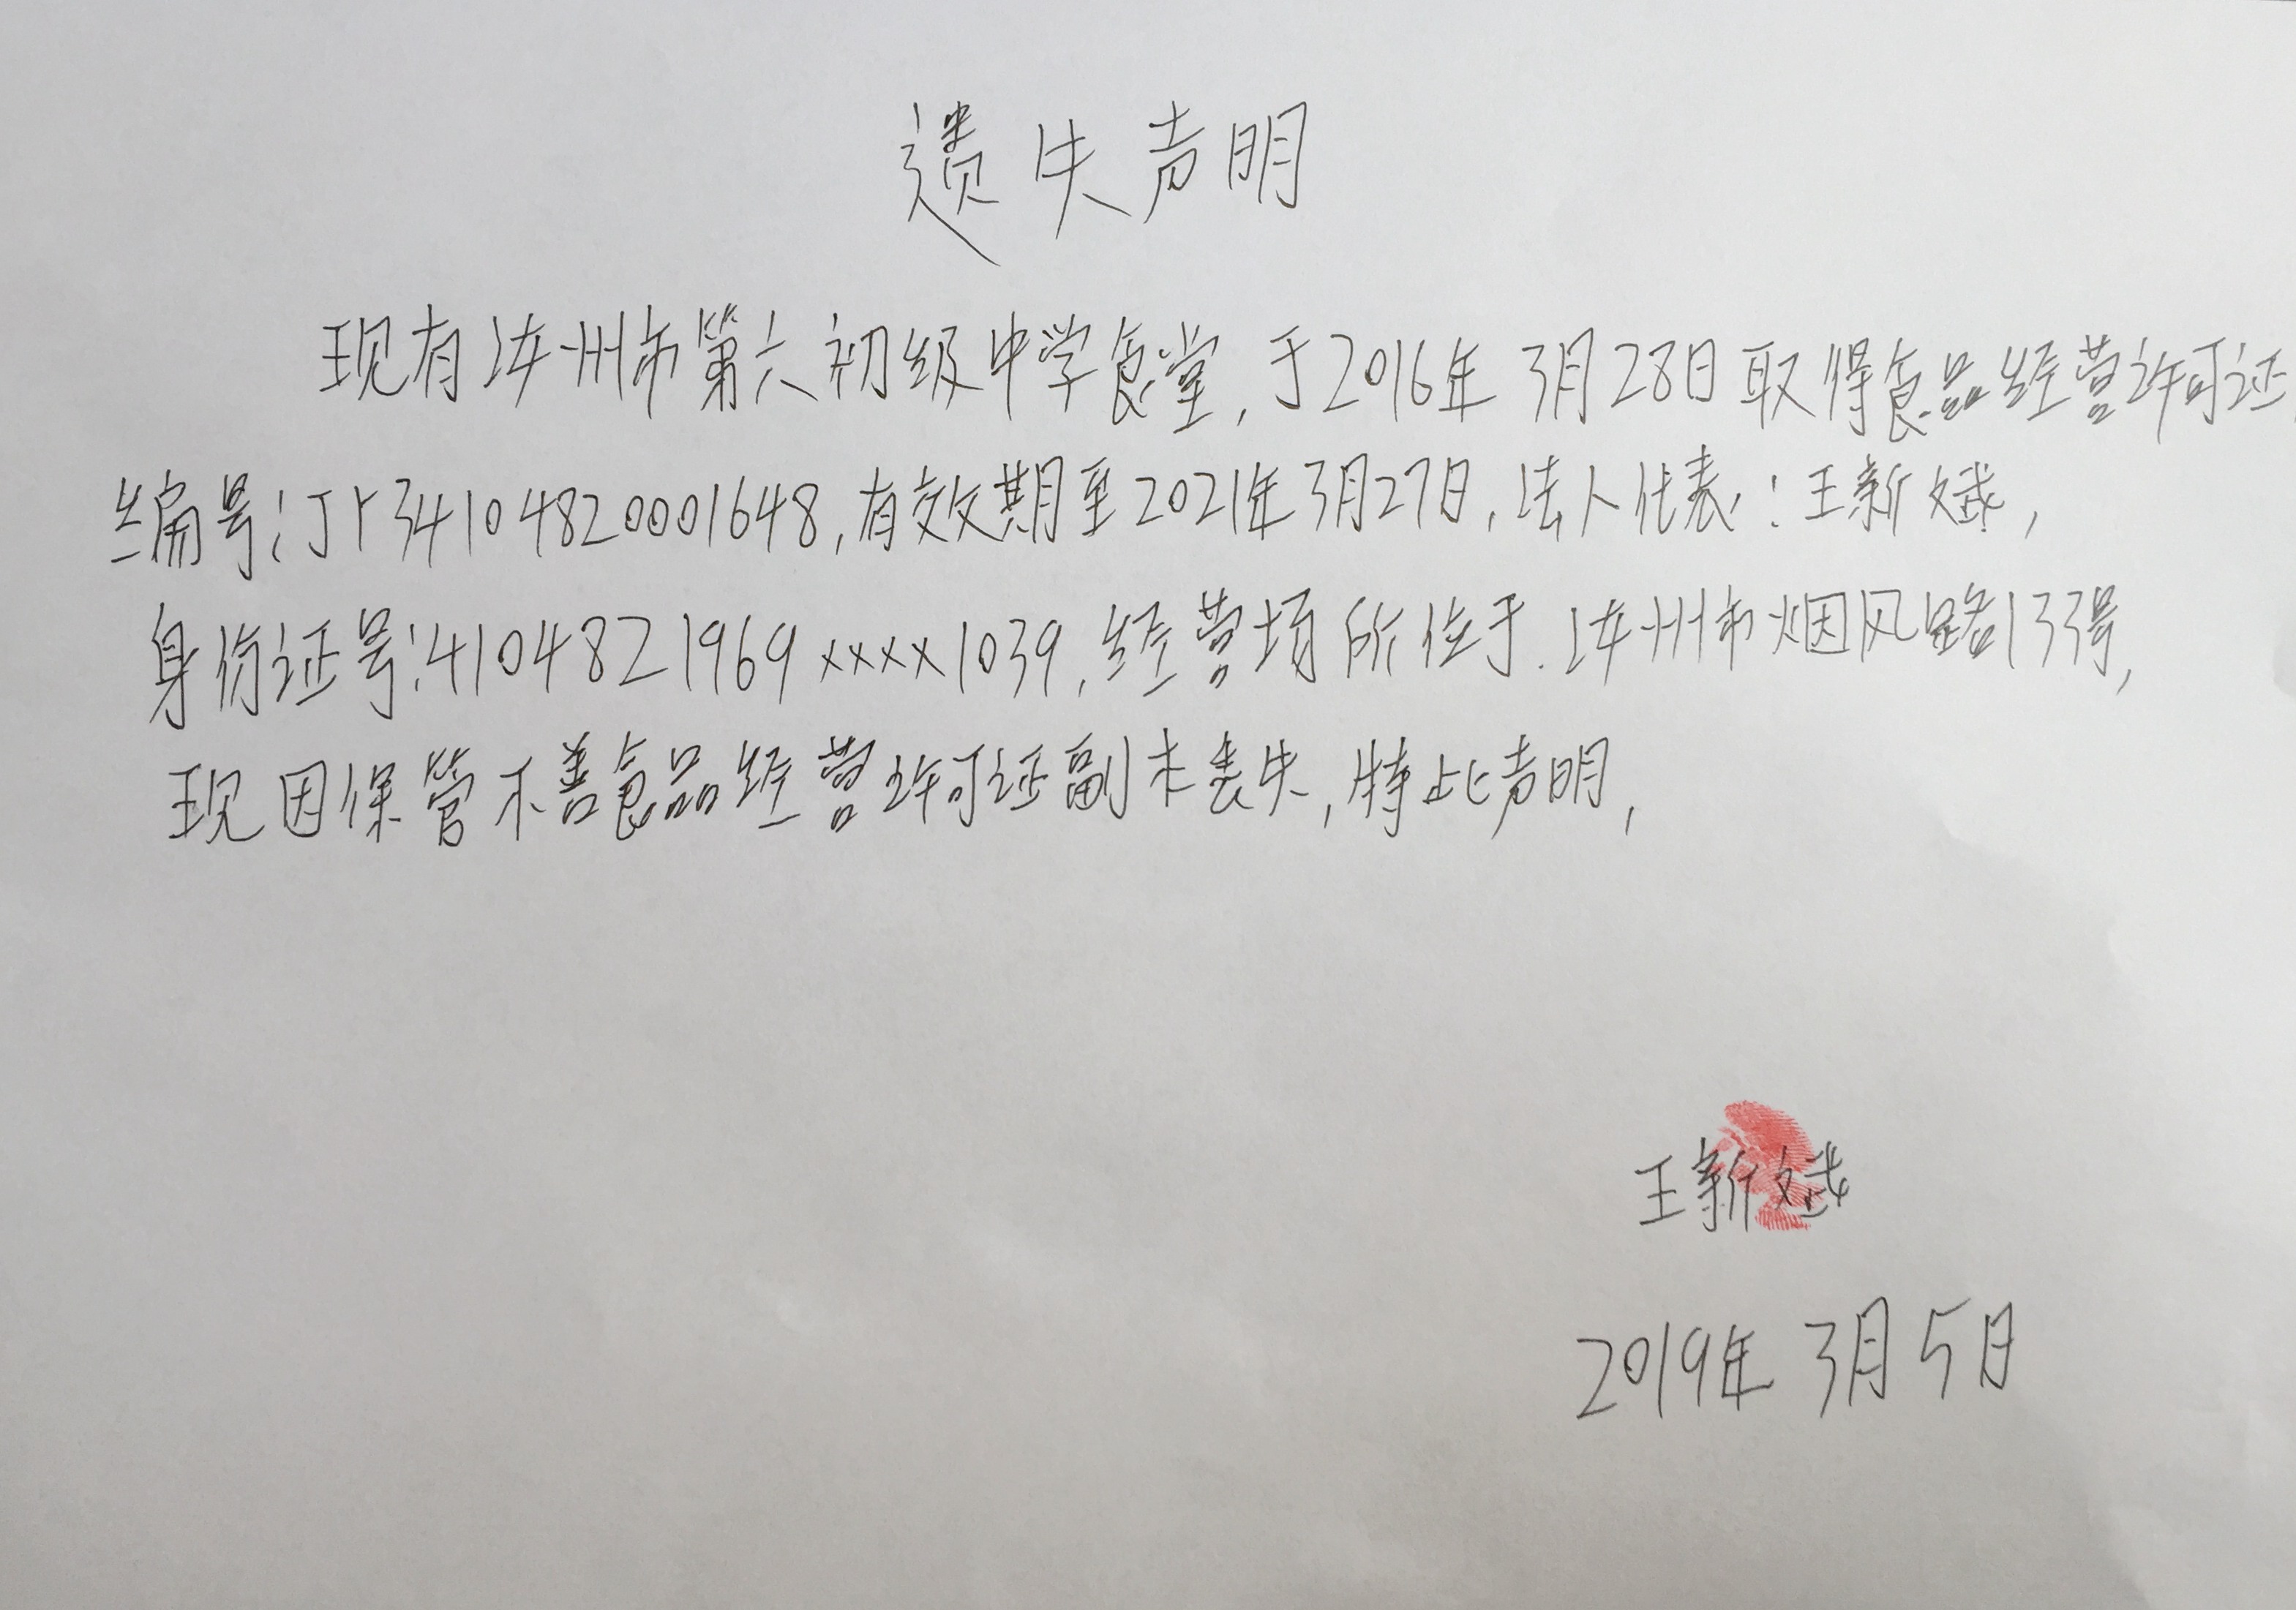 遗失声明
现有汝州市第六初级中学食堂,于2016年3月28日取得食品经营许可证,
编号:JY34104820001648,有效期至2021年3月27日,法人代表:王新斌,
身份证号:4104821969xxxx1039,经营场所位于.汝州市烟风路133号,
现因保管不善食品经营许可证副本丢失,特此声明,
王新斌
2019年3月5日